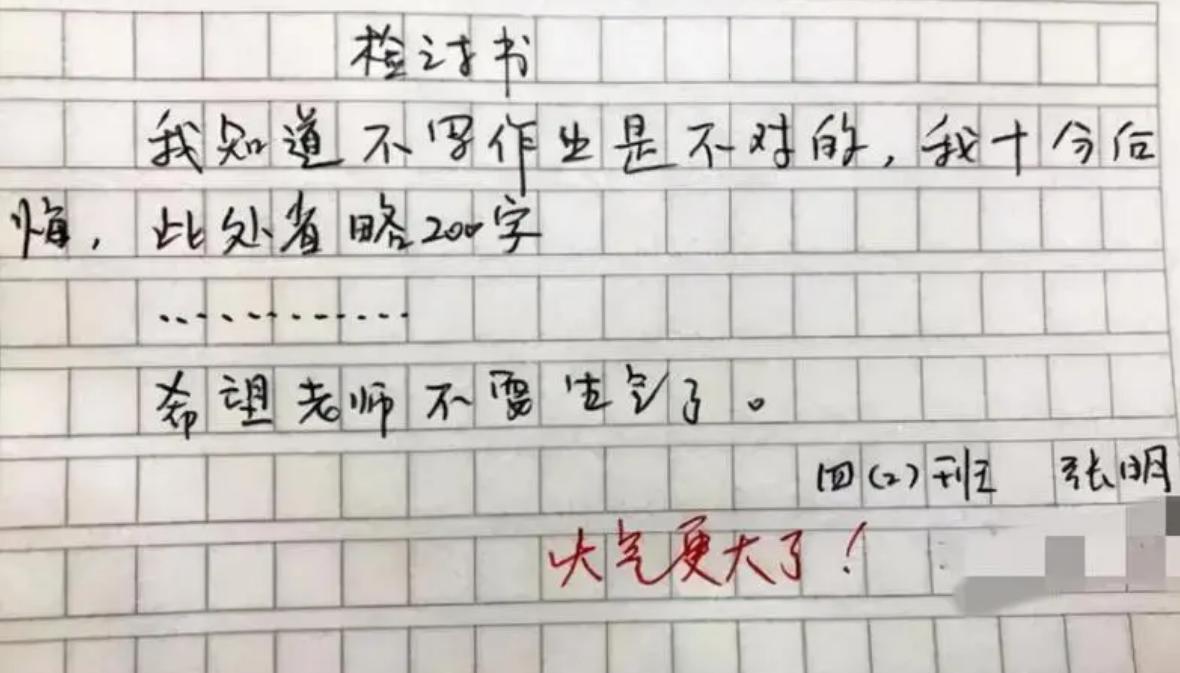 检讨书
我知道不写作业是不对的,我十分后
悔,此处省略200字
…………
希望老师不要生气了。
四(2)班 张明
火气更大了!